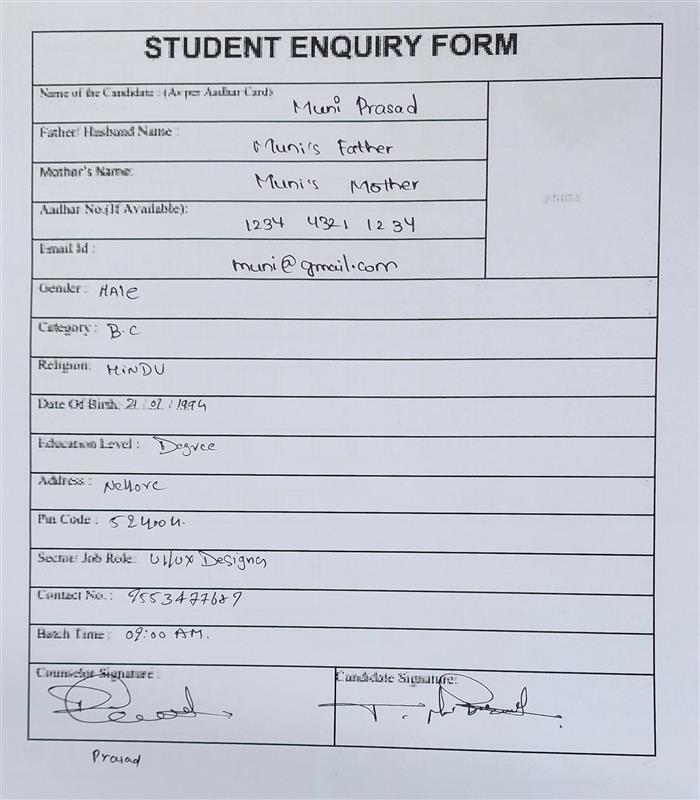 STUDENT ENQUIRY FORM
Name of the Candidate : (As per Aadhar Card)
Muni Prasad
Father/ Husband Name :
Muni's Father
Mother's Name:
Muni's Mother
Aadhar No.(If Available):
1234 4321 1234
Email Id :
muni@gmail.com
photo
Gender : MAle
Category : B.C
Religion: HiNDU
Date Of Birth: 21/07/1994
Education Level : Degree
Address : Nellore
Pin Code : 524004.
Sector/ Job Role: UI/UX Designer
Contact No. : 9553477689
Batch Time : 09:00 AM.
Counselor Signature :
Candidate Signature:
Prasad